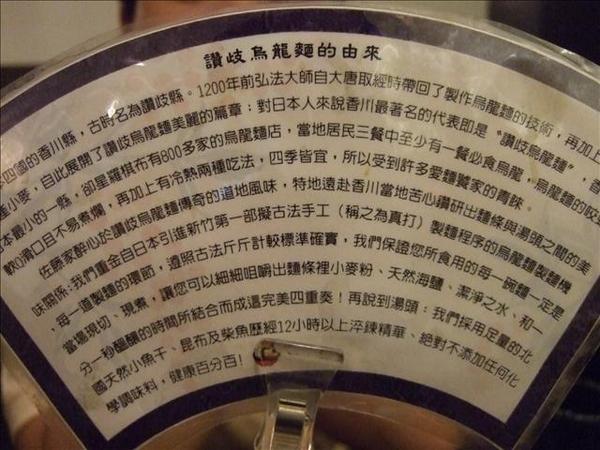 讚岐烏龍麵的由來
四國的香川縣，古時名為讚岐縣。1200年前弘法大師自大唐取經時帶回了製作烏龍麵的技術，再加上
小麥，自此展開了讚岐烏龍麵美麗的篇章：對日本人來說香川最著名的代表即是"讚岐烏龍麵"，香
本最小的一縣，卻星羅棋布有800多家的烏龍麵店，當地居民三餐中至少有一餐必食烏龍，烏龍麵的咬
軟Q滑口且不易煮爛，再加上有冷熱兩種吃法，四季皆宜，所以受到許多愛麵饕家的青睞。
佐藤家醉心於讚岐烏龍麵傳奇的道地風味，特地遠赴香川當地苦心鑽研出麵條與湯頭之間的美
味關係;我們重金自日本引進新竹第一部擬古法手工（稱之為真打）製麵程序的烏龍麵製麵機
，每一道製麵的環節，遵照古法斤斤計較標準確實，我們保證您所食用的每一碗麵一定是
當場現切、現煮，讓您可以細細咀嚼出麵條裡小麥粉、天然海鹽、潔淨之水、和一
分一秒醞釀的時間所結合而成這完美四重奏！再說到湯頭：我們採用足量的北
國天然小魚干、昆布及柴魚歷經12小時以上淬鍊精華、絕對不添加任何化
學調味料，健康百分百！